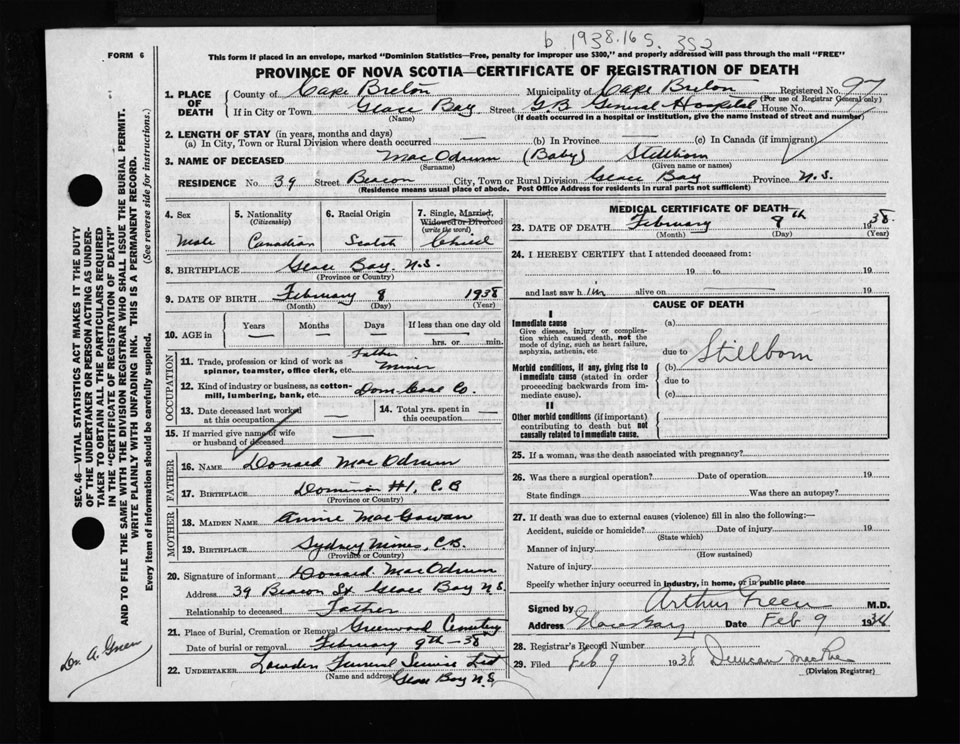 b 1938.16 S. 352
FORM 6
This form if placed in an envelope, marked "Dominion Statistics—Free, penalty for improper use $300," and properly addressed will pass through the mail "FREE"
PROVINCE OF NOVA SCOTIA—CERTIFICATE OF REGISTRATION OF DEATH
1. PLACE OF DEATH County of Cape Breton Municipality of Cape Breton Registered No. 97
(For use of Registrar General only)
If in City or Town Glace Bay Street G.B. General Hospital House No.
(Name) (If death occurred in a hospital or institution, give the name instead of street and number)
2. LENGTH OF STAY (in years, months and days)
(a) In City, Town or Rural Division where death occurred — (b) In Province — (c) In Canada (if immigrant)
3. NAME OF DECEASED MacOdrum (Baby) Stillborn
(Surname) (Given name or names)
RESIDENCE No. 39 Street Beacon City, Town or Rural Division Glace Bay Province N.S.
(Residence means usual place of abode. Post Office Address for residents in rural parts not sufficient)
4. Sex Male
5. Nationality (Citizenship) Canadian
6. Racial Origin Scotch
7. Single, Married, Widowed or Divorced (write the word) Child
8. BIRTHPLACE Glace Bay. N.S.
(Province or Country)
9. DATE OF BIRTH February 8 1938
(Month) (Day) (Year)
10. AGE in Years — Months — Days — If less than one day old
hrs. or min.
OCCUPATION
11. Trade, profession or kind of work as spinner, teamster, office clerk, etc. Father Miner
12. Kind of industry or business, as cotton-mill, lumbering, bank, etc. Dom Coal Co.
13. Date deceased last worked at this occupation — 14. Total yrs. spent in this occupation —
15. If married give name of wife or husband of deceased —
FATHER
16. NAME Donald MacOdrum
17. BIRTHPLACE Dominion #1, C.B
(Province or Country)
MOTHER
18. MAIDEN NAME Annie MacGowan
19. BIRTHPLACE Sydney Mines, C.B.
(Province or Country)
20. Signature of informant Donald MacOdrum
Address 39 Beacon St Glace Bay N.S.
Relationship to deceased Father
21. Place of Burial, Cremation or Removal Greenwood Cemetery
Date of burial or removal February 9th — 38
22. UNDERTAKER Lowden Funeral Service Ltd
(Name and address) Glace Bay N.S.
MEDICAL CERTIFICATE OF DEATH
23. DATE OF DEATH February 8th 1938.
(Month) (Day) (Year)
24. I HEREBY CERTIFY that I attended deceased from:
19 to 19
and last saw h im alive on — 19
CAUSE OF DEATH
I
Immediate cause (a)
Give disease, injury or complication which caused death, not the mode of dying, such as heart failure, asphyxia, asthenia, etc
due to Stillborn
Morbid conditions, if any, giving rise to immediate cause (stated in order proceeding backwards from immediate cause). (b)
due to
(c)
II
Other morbid conditions (if important) contributing to death but not causally related to immediate cause.
25. If a woman, was the death associated with pregnancy?
26. Was there a surgical operation? Date of operation 19
State findings Was there an autopsy?
27. If death was due to external causes (violence) fill in also the following:—
Accident, suicide or homicide? Date of injury 19
(State which)
Manner of injury
(How sustained)
Nature of injury
Specify whether injury occurred in industry, in home, or in public place
Signed by Arthur Green M.D.
Address Glace Bay Date Feb 9 1938
28. Registrar's Record Number
29. Filed Feb 9 1938 Duncan MacRae
(Division Registrar)
SEC. 46—VITAL STATISTICS ACT MAKES IT THE DUTY
OF THE UNDERTAKER OR PERSON ACTING AS UNDER-
TAKER TO OBTAIN ALL THE PARTICULARS REQUIRED
IN THE "CERTIFICATE OF REGISTRATION OF DEATH"
AND TO FILE THE SAME WITH THE DIVISION REGISTRAR WHO SHALL ISSUE THE BURIAL PERMIT.
WRITE PLAINLY WITH UNFADING INK. THIS IS A PERMANENT RECORD.
Every item of information should be carefully supplied. (See reverse side for instructions.)
Dr. A. Green